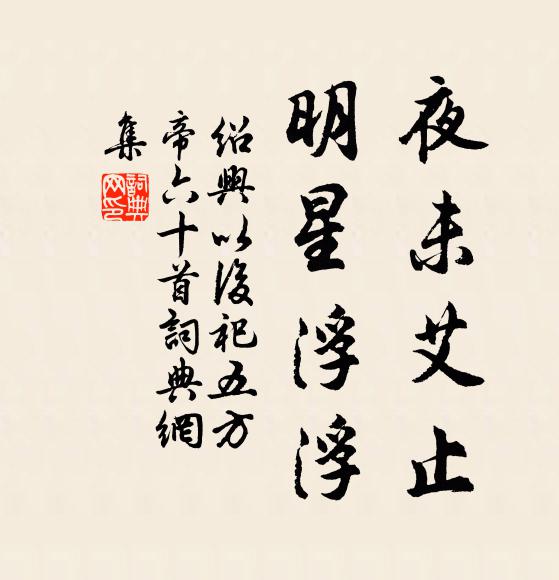 夜未艾止
明星浮浮
紹興以後祀五方
帝六十首詞典網
集
詞典
网印